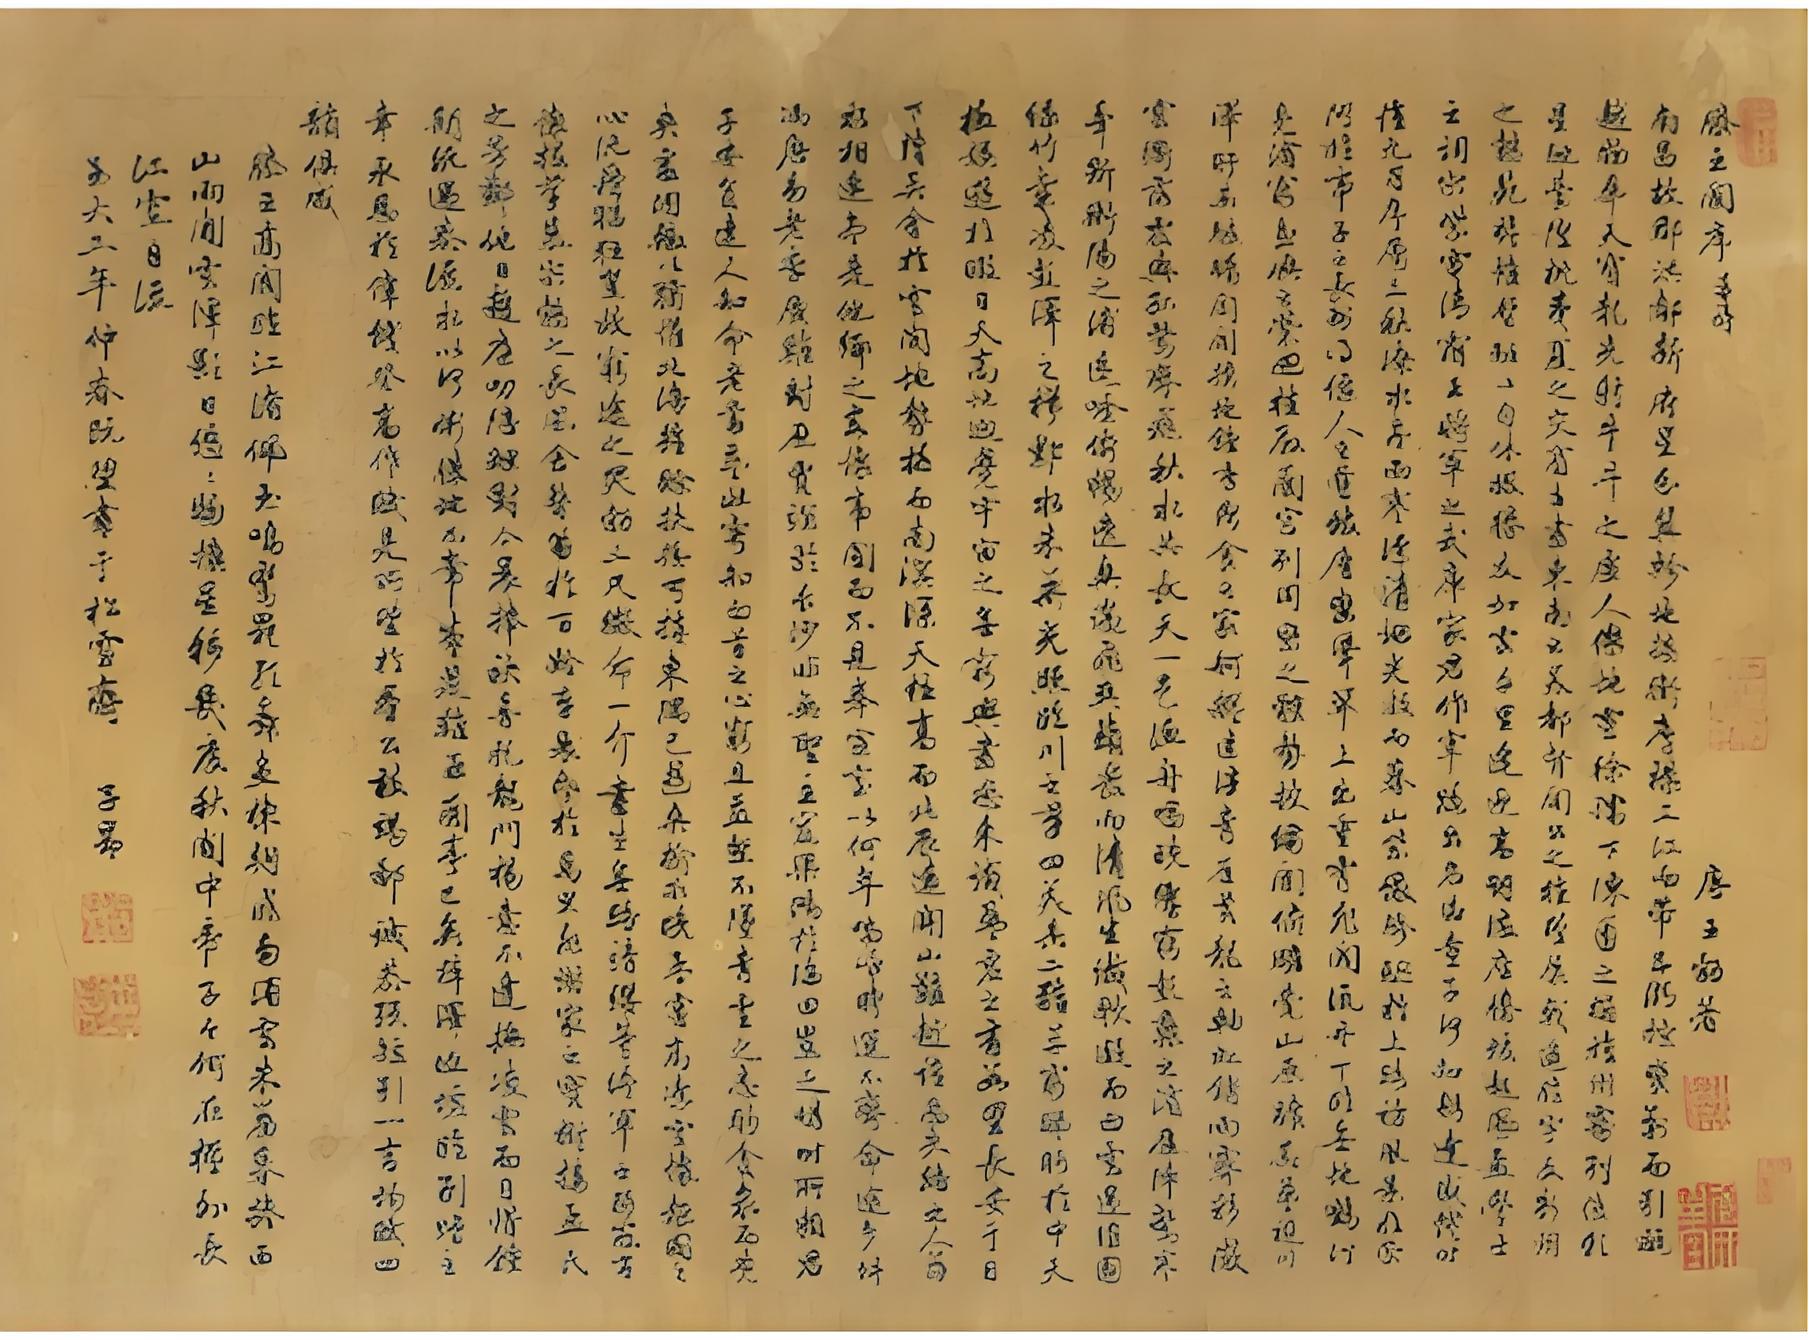 滕王閣序 并詩 唐王勃著
南昌故郡洪都新府星分翼軫地接衡廬襟三江而帶五湖控蠻荊而引甌
越物華天寶龍光射牛斗之虛人傑地靈徐孺下陳蕃之榻雄州霧列俊彩
星馳臺隍枕夷夏之交賓主盡東南之美都督閻公之雅望棨戟遙臨宇文新州
之懿範襜帷暫駐十旬休暇勝友如雲千里逢迎高朋滿座騰蛟起鳳孟學士
之詞宗紫電清霜王將軍之武庫家君作宰路出名區童子何知躬逢勝餞時
維九月序屬三秋潦水盡而寒潭清烟光凝而暮山紫儼驂騑於上路訪風景於崇
阿臨帝子之長洲得仙人之舊館層巒聳翠上出重霄飛閣流丹下臨無地鶴汀
鳧渚窮島嶼之縈迴桂殿蘭宮列岡巒之體勢披繡闥俯雕甍山原曠其盈視川
澤盱其駭矚閭閻撲地鐘鳴鼎食之家舸艦迷津青雀黃龍之軸虹銷雨霽彩徹
雲衢落霞與孤鶩齊飛秋水共長天一色漁舟唱晚響窮彭蠡之濱雁陣驚寒
聲斷衡陽之浦遙吟俯暢逸興遄飛爽籟發而清風生纖歌凝而白雲遏睢園
綠竹氣凌彭澤之樽鄴水朱華光照臨川之筆四美具二難并窮睇眄於中天
極娛遊於暇日天高地迥覺宇宙之無窮興盡悲來識盈虛之有數望長安于日
下指吳會於雲間地勢極而南溟深天柱高而北辰遠關山難越誰悲失路之人萍
水相逢盡是他鄉之客懷帝閽而不見奉宣室以何年嗚呼時運不齊命途多舛
馮唐易老李廣難封屈賈誼於長沙非無聖主竄梁鴻於海曲豈乏明時所賴君
子安貧達人知命老當益壯寧知白首之心窮且益堅不墜青雲之志酌貪泉而覺
爽處涸轍以猶懽北海雖賒扶搖可接東隅已逝桑榆非晚孟嘗高潔空懷報國之
心阮籍猖狂豈效窮途之哭勃三尺微命一介書生無路請纓等終軍之弱冠有
懷投筆慕宗慤之長風舍簪笏於百齡奉晨昏於萬里非謝家之寶樹接孟氏
之芳鄰他日趨庭叨陪鯉對今晨捧袂喜托龍門楊意不逢撫凌雲而自惜鍾
期既遇奏流水以何慚勝地不常盛筵難再蘭亭已矣梓澤丘墟臨別贈言
幸承恩於偉餞登高作賦是所望於羣公敢竭鄙誠恭疏短引一言均賦四
韻俱成
滕王高閣臨江渚佩玉鳴鸞罷歌舞畫棟朝飛南浦雲朱簾暮捲西
山雨閒雲潭影日悠々物換星移幾度秋閣中帝子今何在檻外長
江空自流
至大二年仲春既望書于松雪齋 子昂